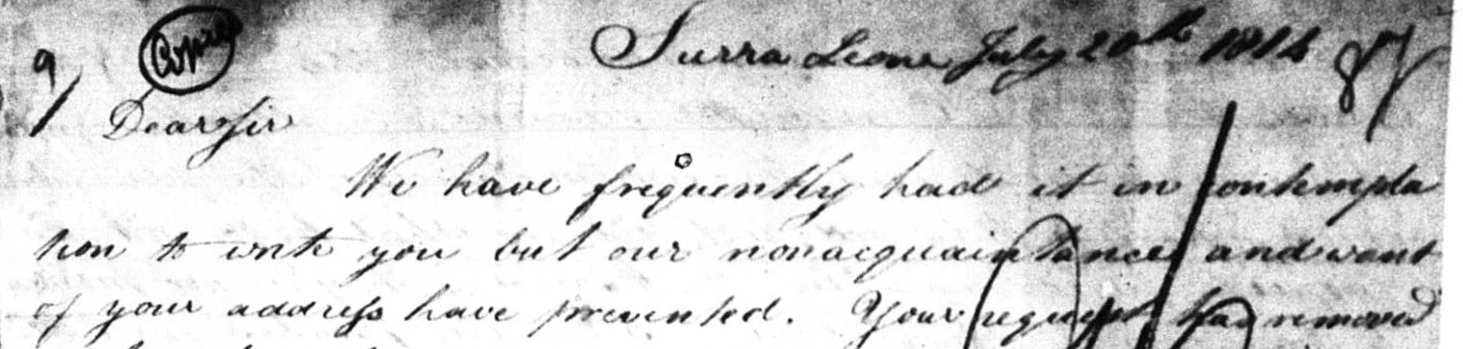 9/ Copied Surra Leone July 20th 1814 87
Dear Sir
We have frequently had it in contempla
tion to write you but our nonacquaintance and want
of your address have prevented. Your request has removed